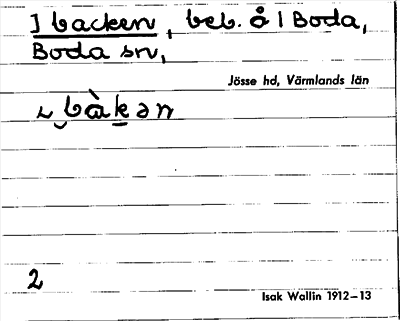 I backen, beb. å 1 Boda,
Boda sn,
Jösse hd, Värmlands län
ɩ bàkən
2
Isak Wallin 1912–13